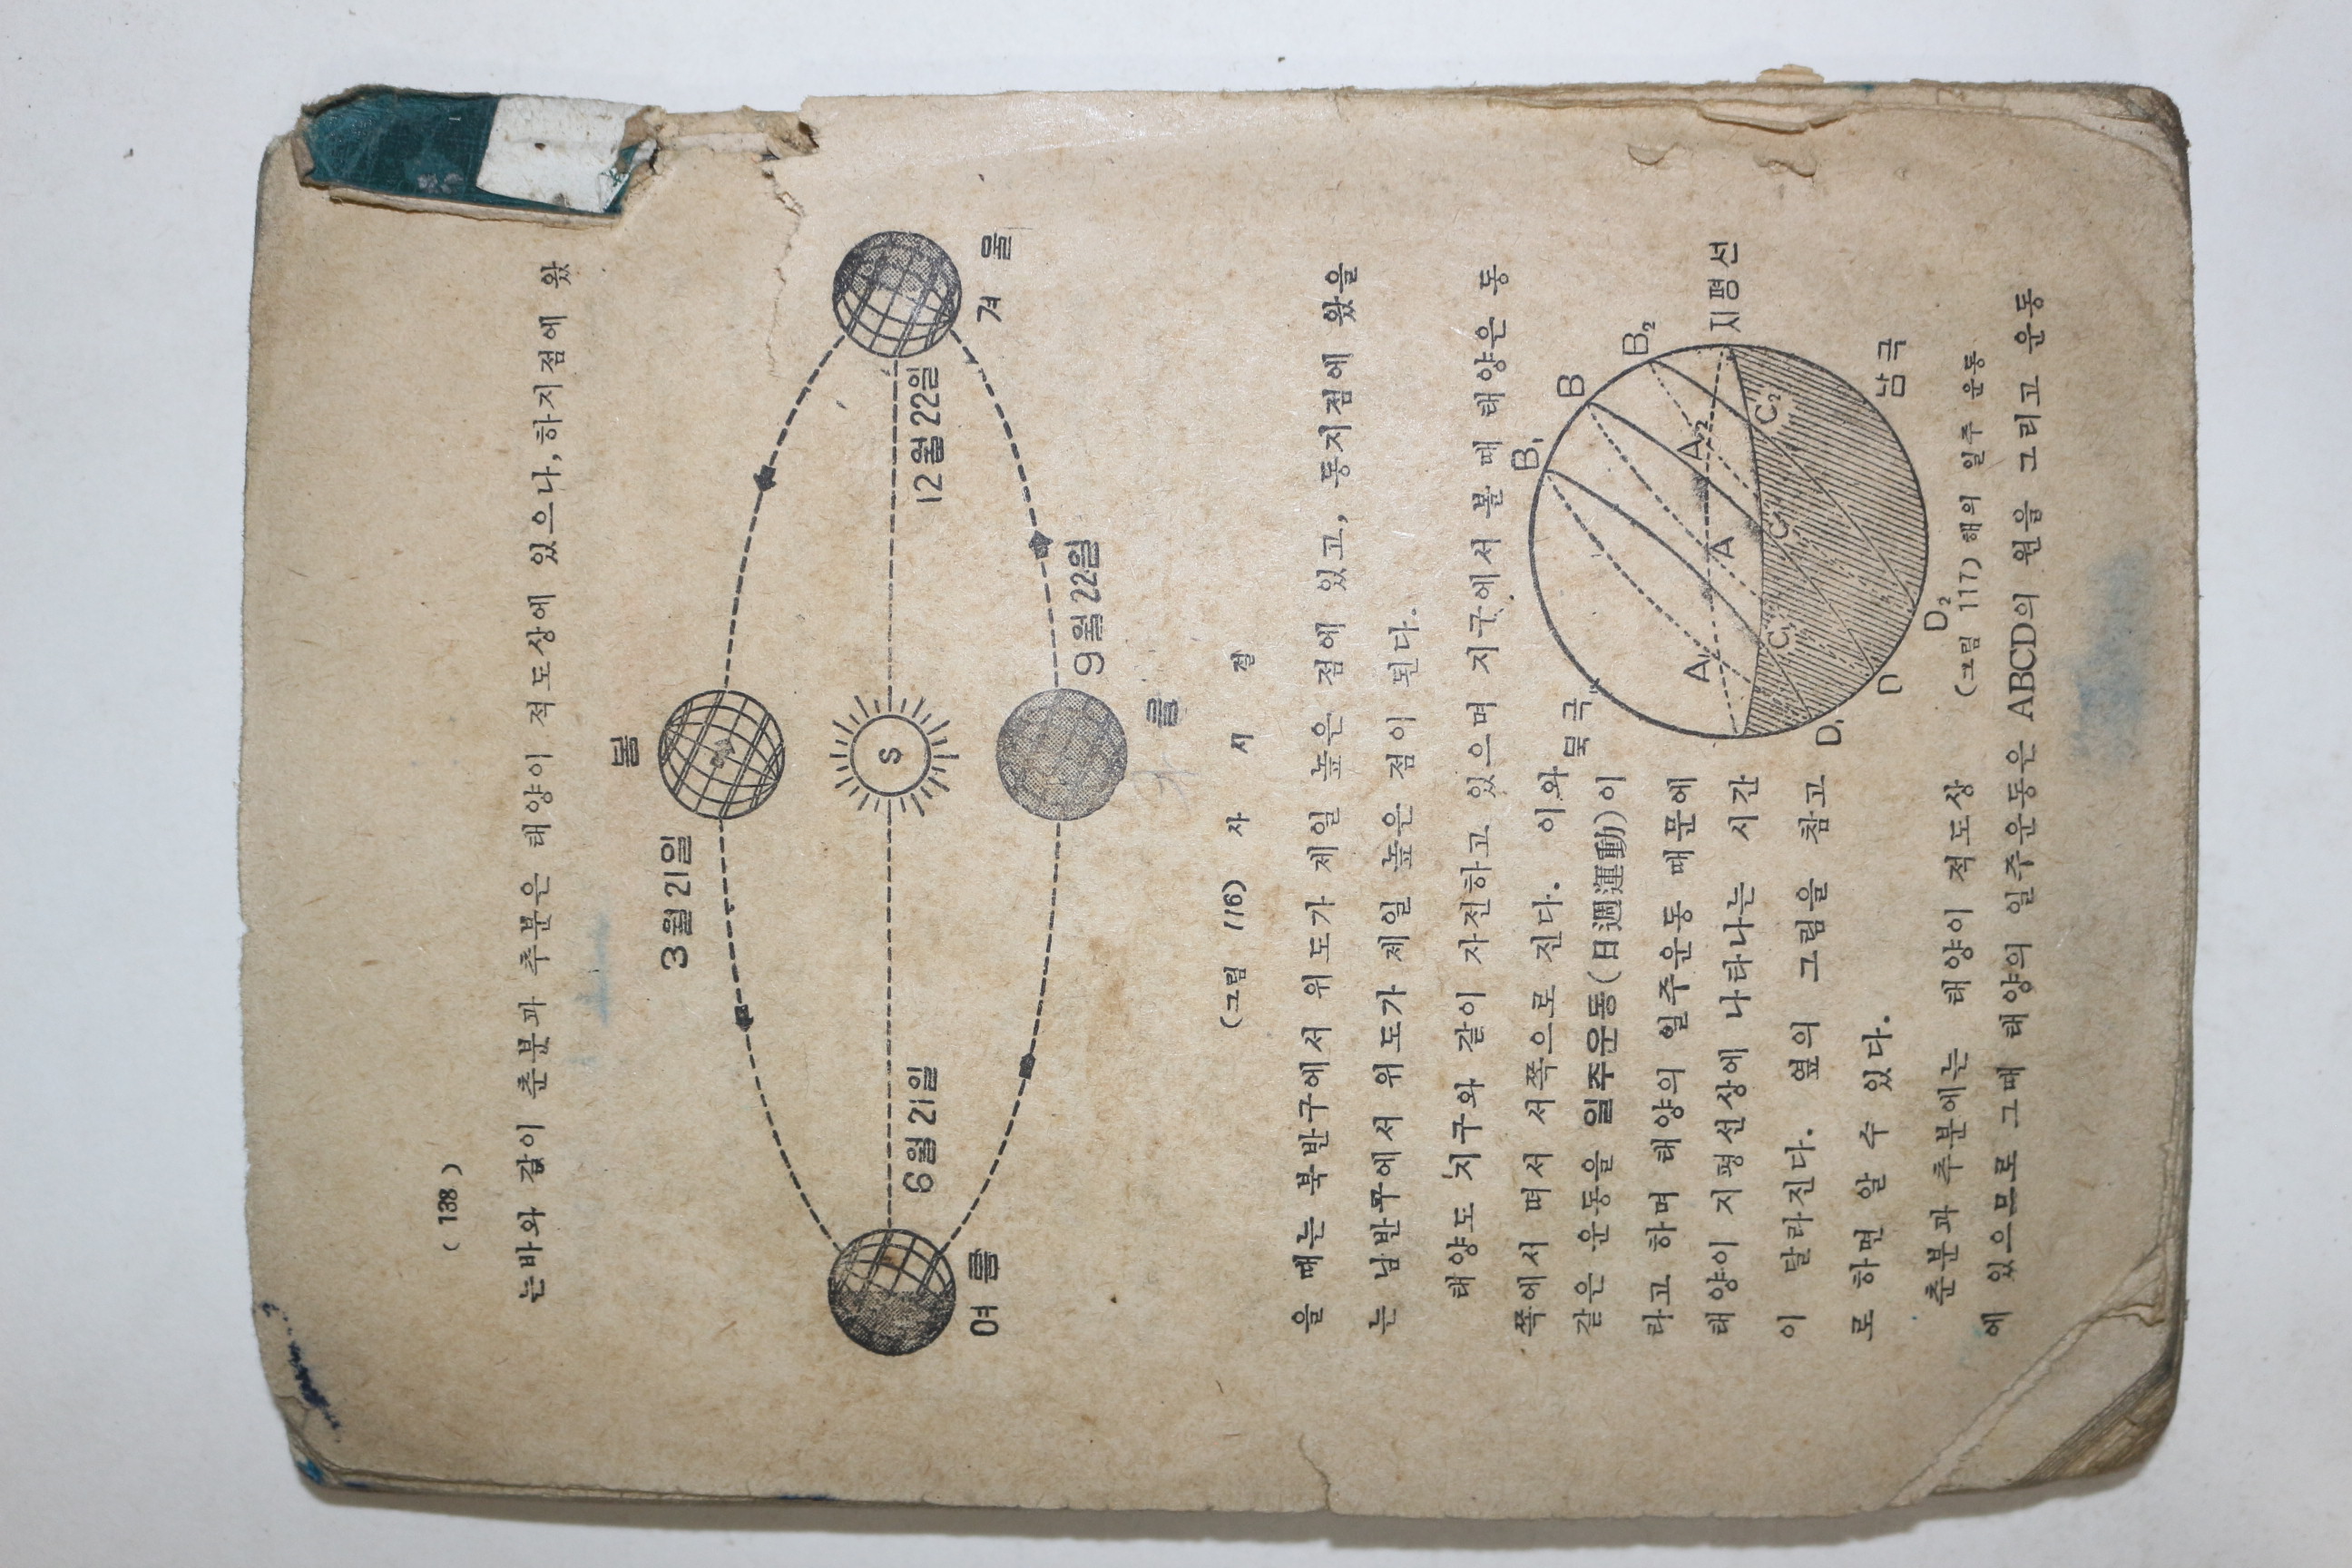 ( 138 )
는바와 같이 춘분과 추분은 태양이 적도상에 있으나, 하지점에 왔
봄
3월 21일
S
6월 21일
12월 22일
여름
겨울
9월 22일
(그림 116) 사 시 절
을 때는 북반구에서 위도가 제일 높은 점에 있고, 동지점에 왔을
는 남반구에서 위도가 제일 높은 점이 된다.
태양도 지구와 같이 자전하고 있으며 지구에서 볼 때 태양은 동
쪽에서 떠서 서쪽으로 진다. 이와
같은 운동을 일주운동(日週運動)이
라고 하며 태양의 일주운동 때문에
태양이 지평선상에 나타나는 시간
이 달라진다. 옆의 그림을 참고
로 하면 알 수 있다.
B₁
B
B₂
북극
A₁
A
A₂
지평선
C₁
C
C₂
D₁
D
D₂
남극
(그림 117) 해의 일주 운동
춘분과 추분에는 태양이 적도상
에 있으므로 그때 태양의 일주운동은 ABCD의 원을 그리고 운동